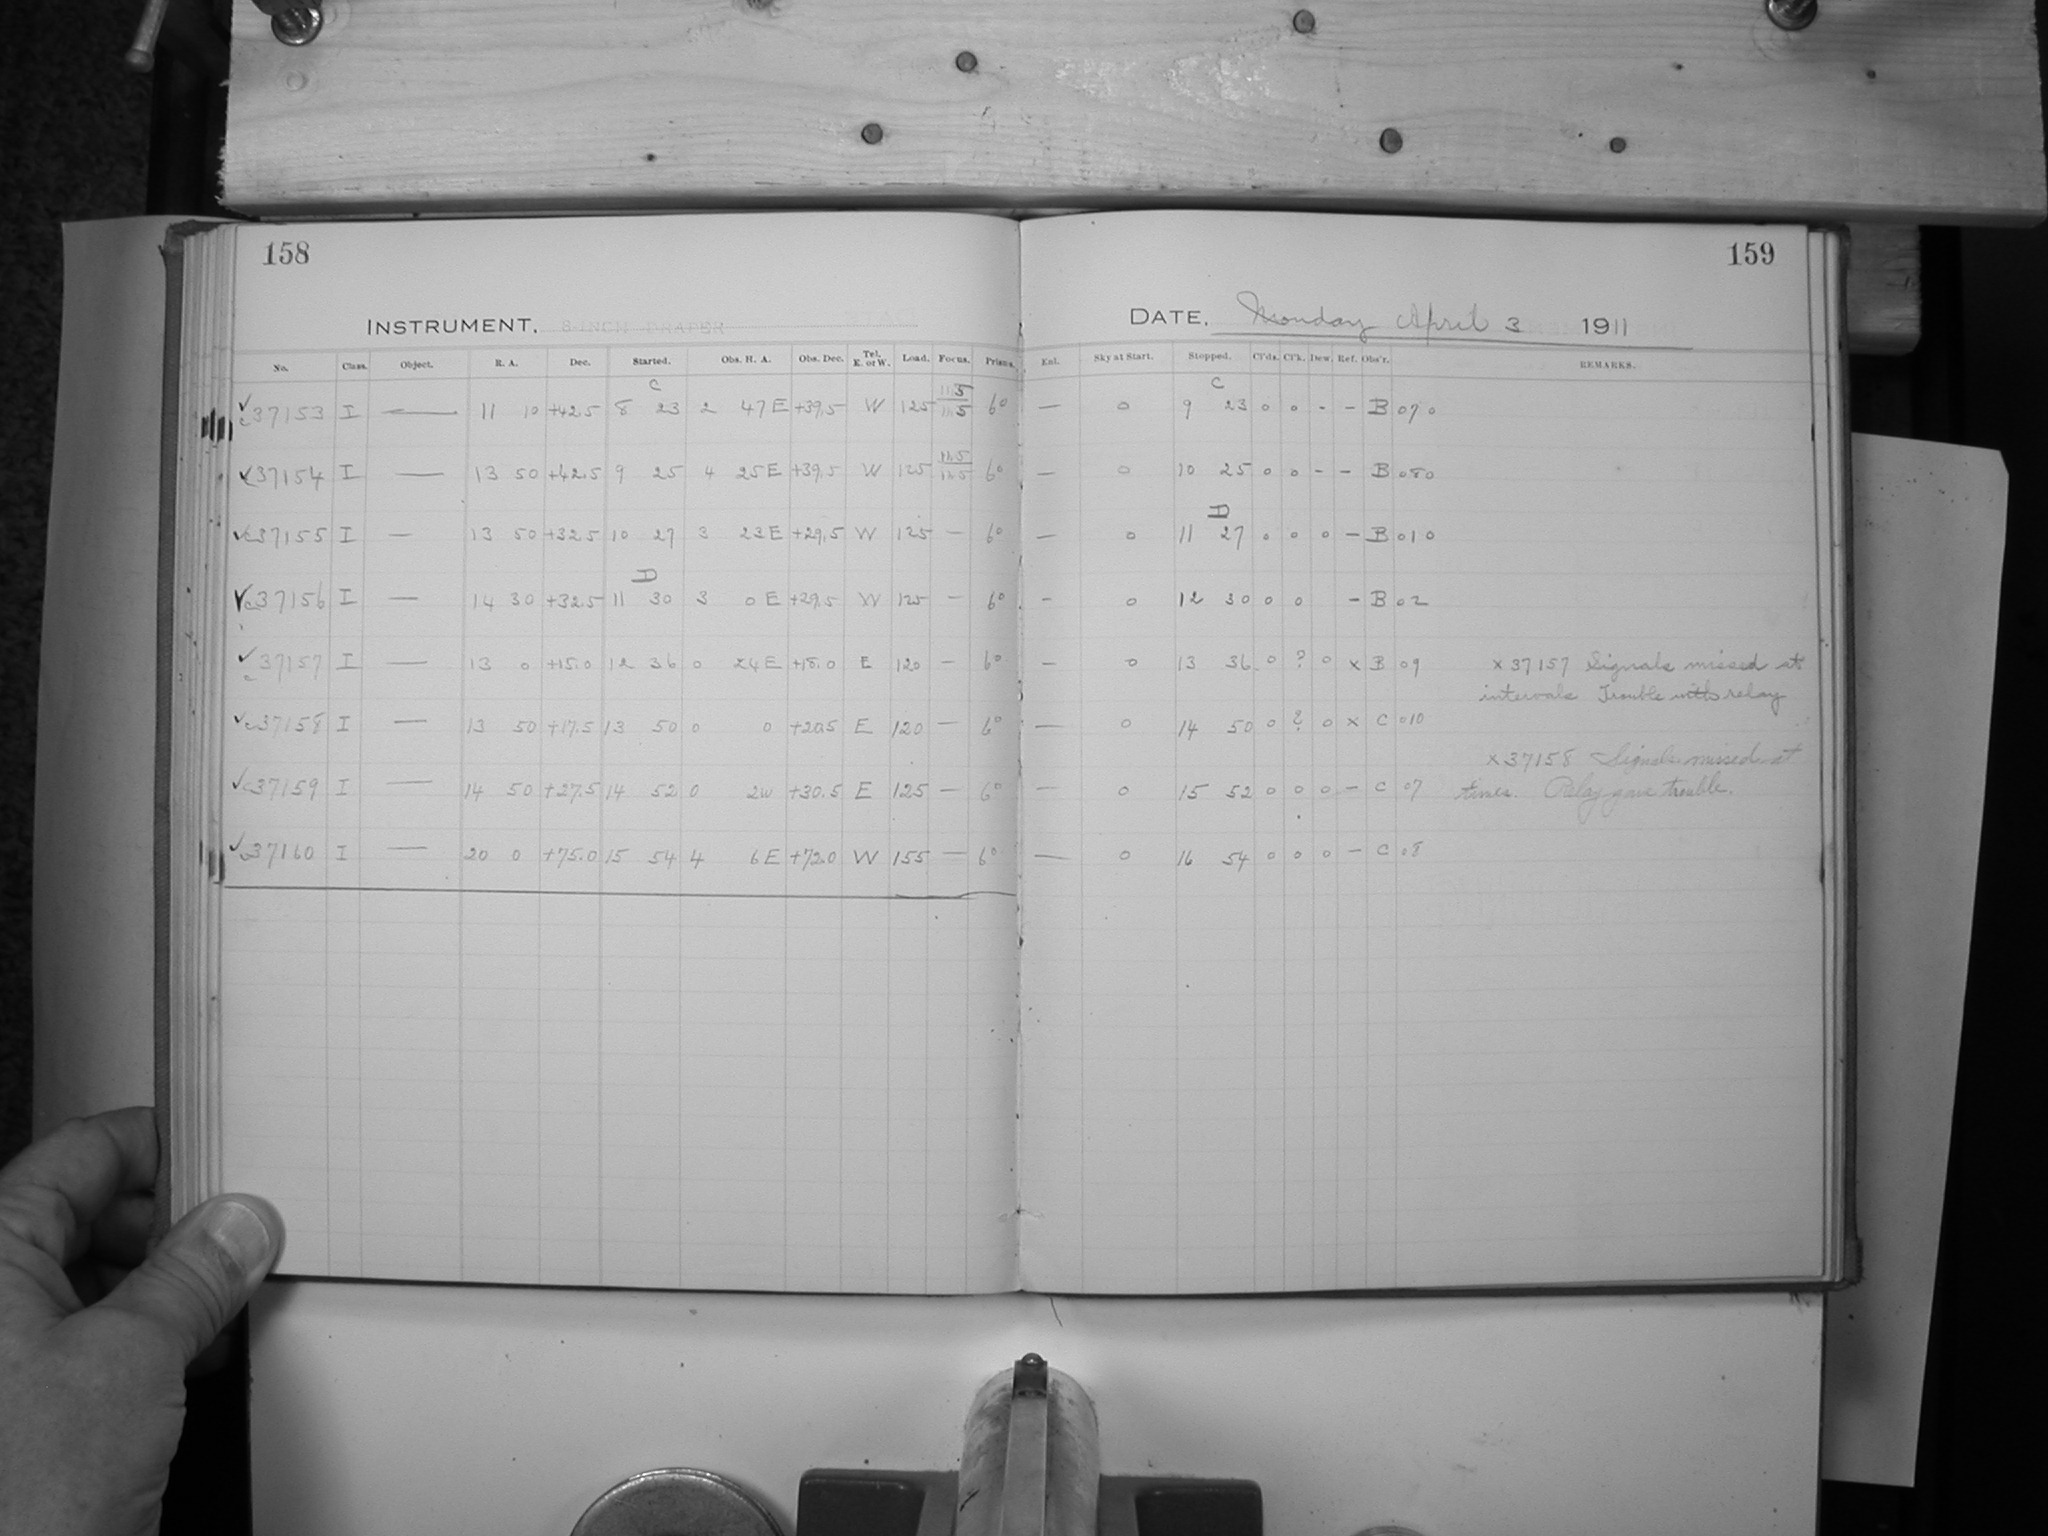 158
159
INSTRUMENT, 8-INCH DRAPER
DATE, Monday April 3 1911
No. Class. Object. R. A. Dec. Started. Obs. H. A. Obs. Dec. Tel. E. or W. Load. Focus. Prism. Enl. Sky at Start. Stopped. Cl'ds. Cl'k. Dew. Ref. Obs'r. REMARKS.
C C
✓ c 37153 I — 11 10 +42.5 8 23 2 47 E +39.5 W 125 6° — 0 9 23 0 0 - - B 090
✓ c 37154 I — 13 50 +42.5 9 25 4 25 E +39.5 W 125 6° — 0 10 25 0 0 - - B 080
H
✓ c 37155 I — 13 50 +32.5 10 27 3 23 E +29.5 W 125 — 6° — 0 11 27 0 0 0 - B 010
H
✓ c 37156 I — 14 30 +32.5 11 30 3 0 E +29.5 W 125 — 6° - 0 12 30 0 0 - B 02
✓ c 37157 I — 13 0 +15.0 12 36 0 24 E +18.0 E 120 — 6° — 0 13 36 0 ? 0 x B 09 x 37157 Signals missed at
intervals Trouble with relay
✓ c 37158 I — 13 50 +17.5 13 50 0 0 +20.5 E 120 — 6° — 0 14 50 0 ? 0 x C 010
x 37158 Signals missed at
✓ c 37159 I — 14 50 +27.5 14 52 0 2 W +30.5 E 125 — 6° — 0 15 52 0 0 0 - C 07 times. Relay gave trouble.
✓ c 37160 I — 20 0 +75.0 15 54 4 6 E +72.0 W 155 — 6° — 0 16 54 0 0 0 - C 08